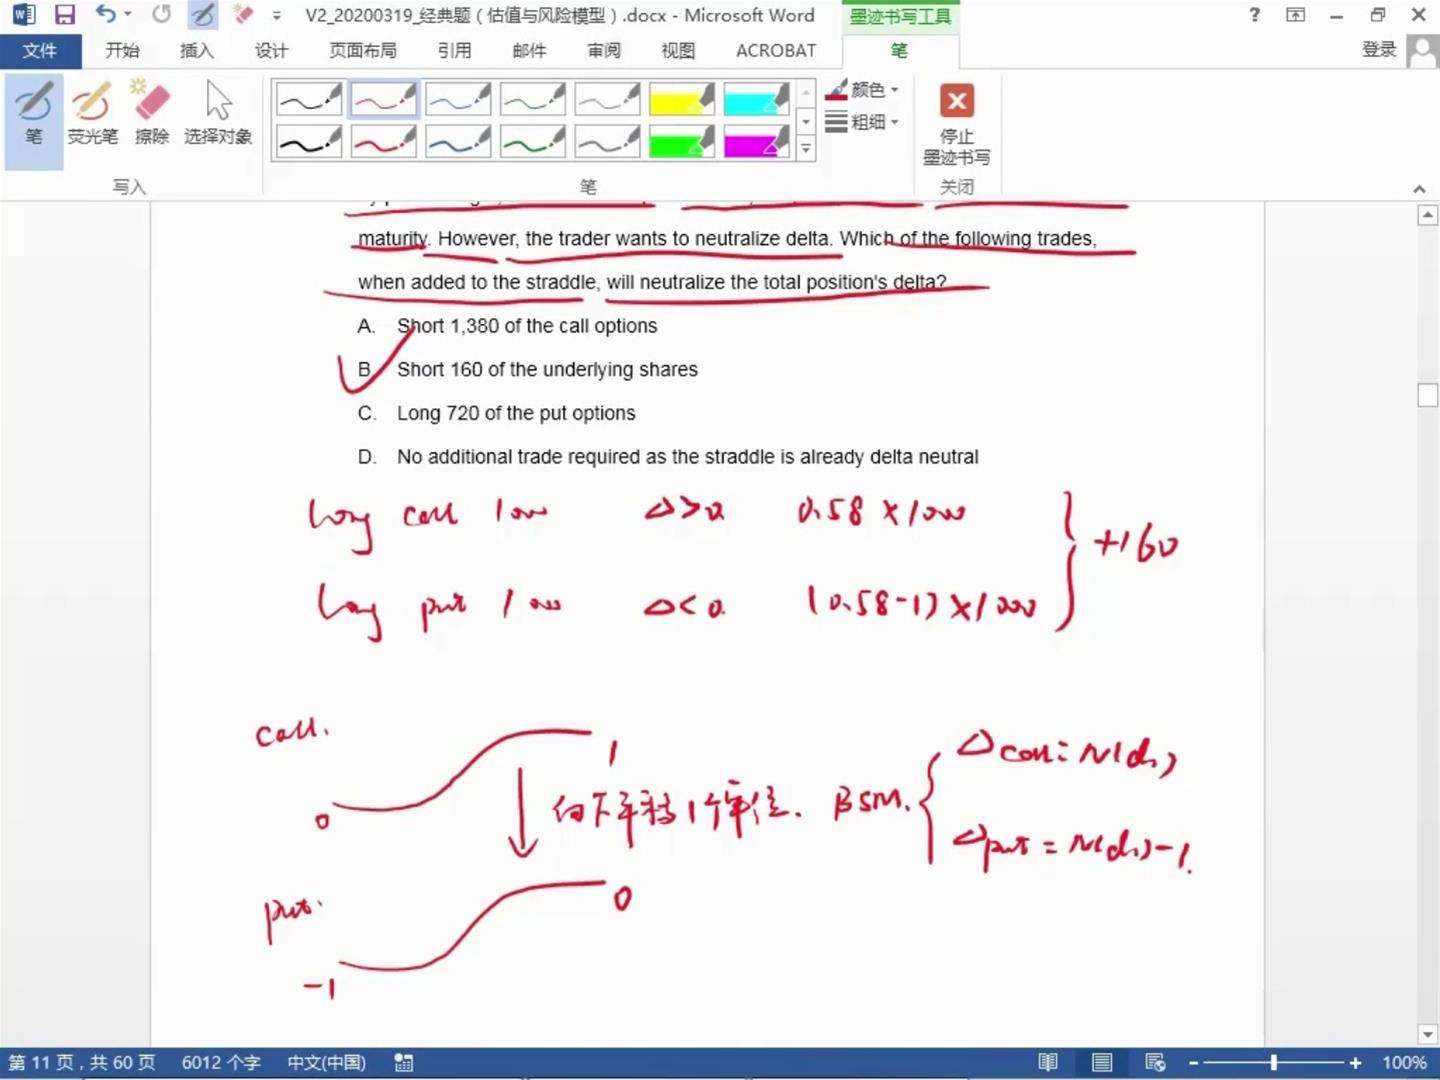 V2_20200319_经典题（估值与风险模型）.docx - Microsoft Word
墨迹书写工具
?
文件
开始
插入
设计
页面布局
引用
邮件
审阅
视图
ACROBAT
笔
登录
笔
荧光笔
擦除
选择对象
颜色
粗细
停止
墨迹书写
写入
笔
关闭
maturity. However, the trader wants to neutralize delta. Which of the following trades,
when added to the straddle, will neutralize the total position's delta?
A. Short 1,380 of the call options
B. Short 160 of the underlying shares
C. Long 720 of the put options
D. No additional trade required as the straddle is already delta neutral
long call 1000 Δ>0 0.58×1000
+160
long put 1000 Δ<0 (0.58-1)×1000
call.
1
0
向下平移1个单位.
BSM.
Δcall=N(d₁)
Δput=N(d₁)-1.
put.
0
-1
第 11 页，共 60 页
6012 个字
中文(中国)
100%